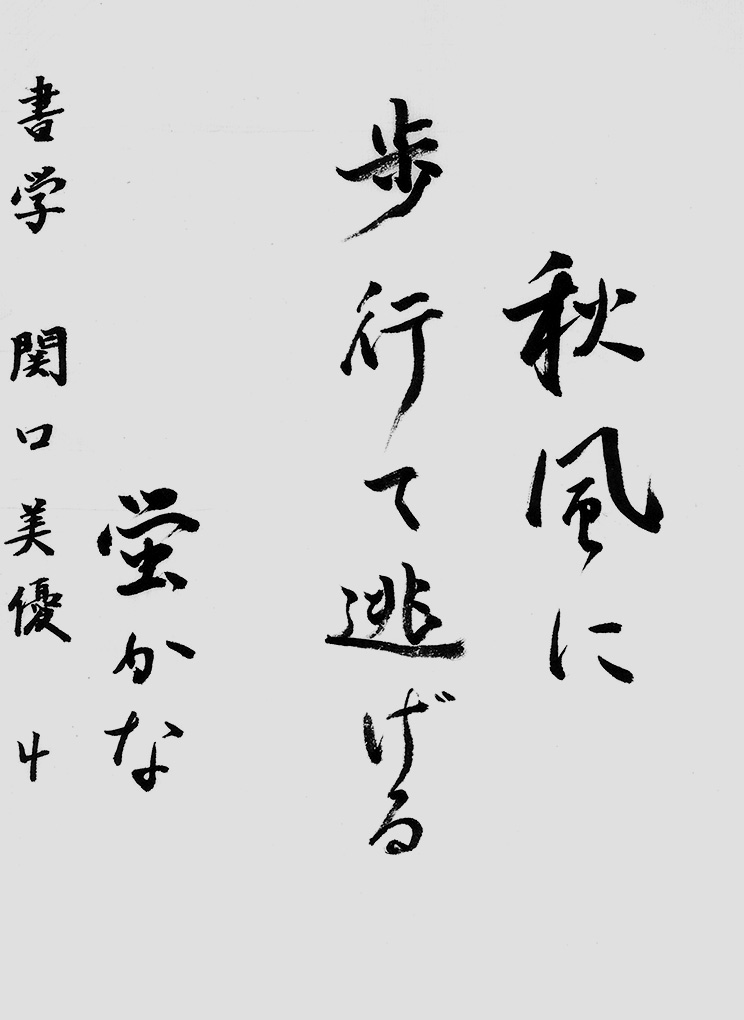 秋風に
歩行て逃げる
蛍かな
書学 関口美優